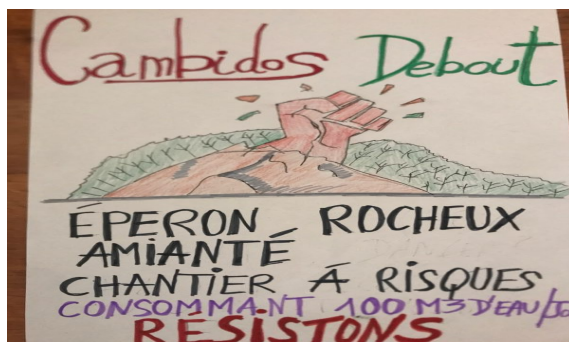 Cambidos Debout
ÉPERON ROCHEUX
AMIANTÉ
CHANTIER À RISQUES
CONSOMMANT 100 M3 D'EAU/JO
RÉSISTONS